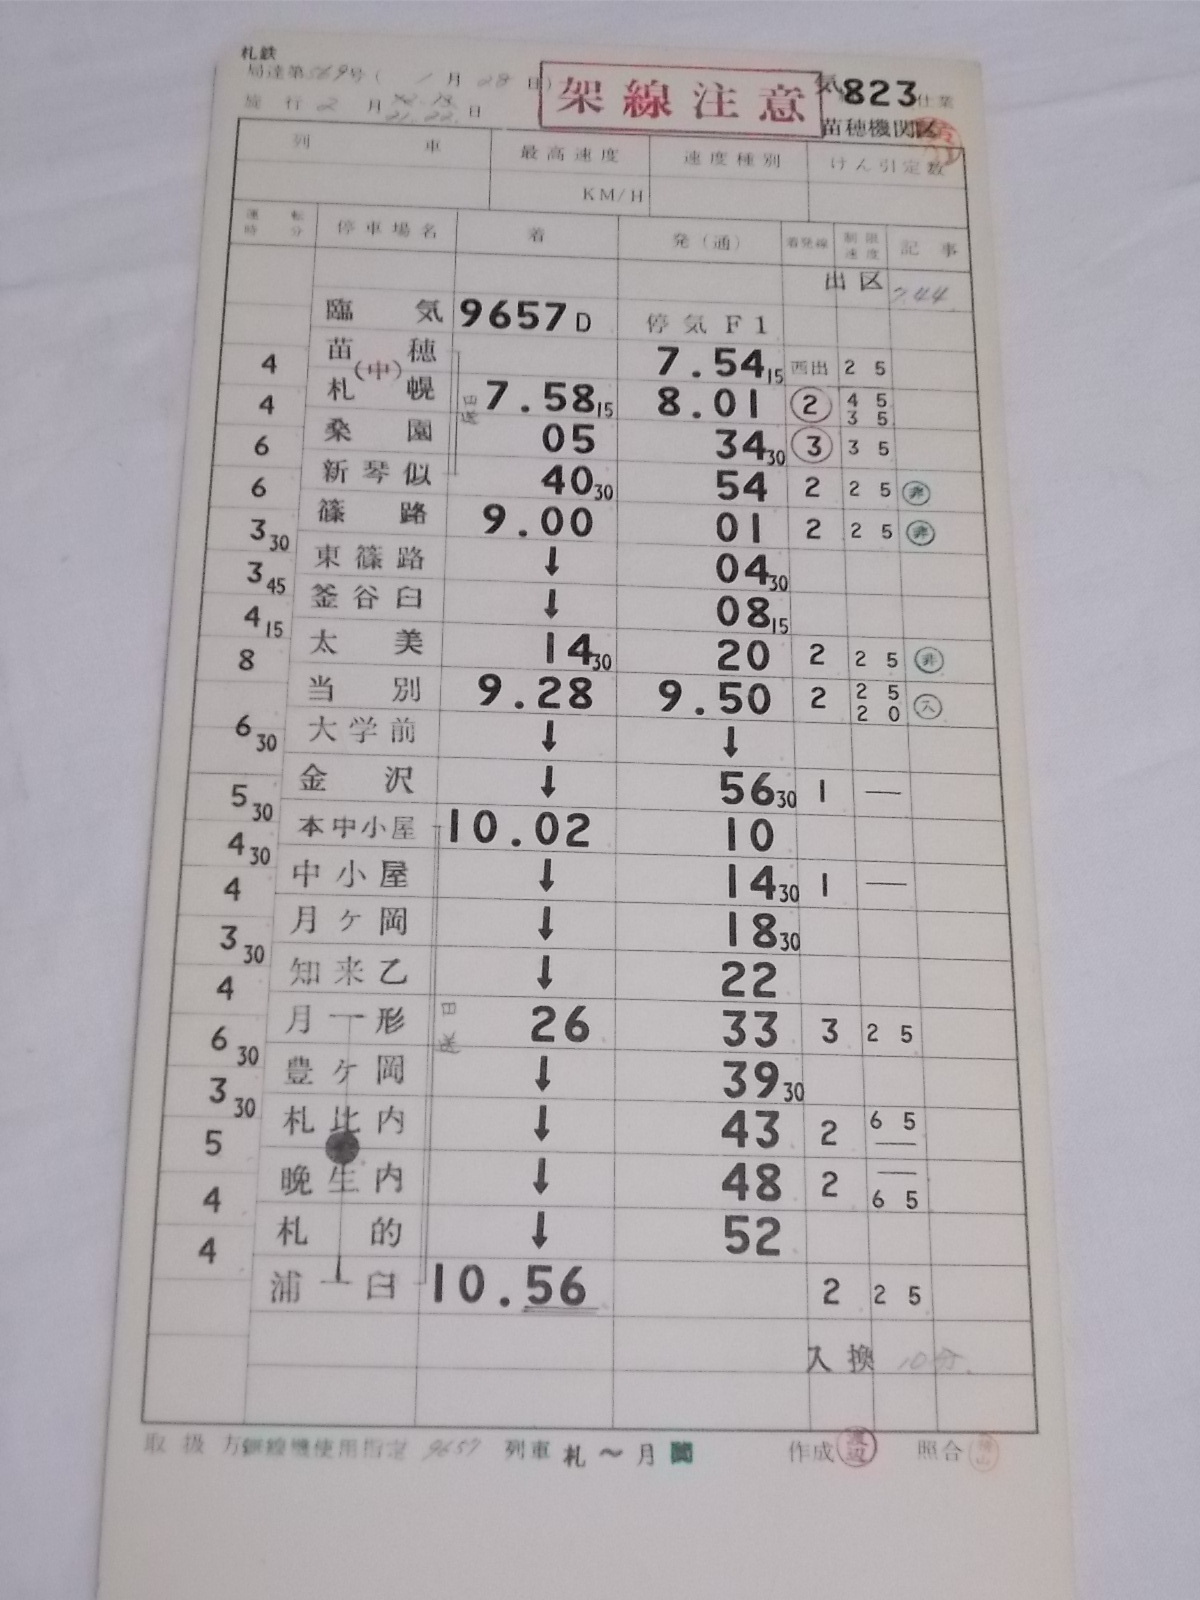 札鉄
局達第569号( 1月28日)
架線注意
気823仕業
施行2月 日
21.22.
苗穂機関区
列車 最高速度 速度種別 けん引定数
KM/H
運転時分 停車場名 着 発(通) 着発線 制限速度 記事
出区 7.44
臨気 9657D 停気F1
4 苗穂 7.5415 西出 25
(中)
4 札幌 7.5815 8.01 2 45 35
6 桑園 05 3430 3 35
6 新琴似 4030 54 2 25 非
330 篠路 9.00 01 2 25 非
345 東篠路 ↓ 0430
415 釜谷臼 ↓ 0815
8 太美 1430 20 2 25 非
630 当別 9.28 9.50 2 25 20 入
大学前 ↓ ↓
530 金沢 ↓ 5630 1 —
430 本中小屋 10.02 10
4 中小屋 ↓ 1430 1 —
330 月ヶ岡 ↓ 1830
4 知来乙 ↓ 22
630 月形 26 33 3 25
330 豊ヶ岡 ↓ 3930
5 札比内 ↓ 43 2 65 —
4 晩生内 ↓ 48 2 — 65
4 札的 ↓ 52
浦臼 10.56 2 25
入換 10分.
取扱方 無線機使用指定 9657 列車 札〜月間 作成 渡辺 照合